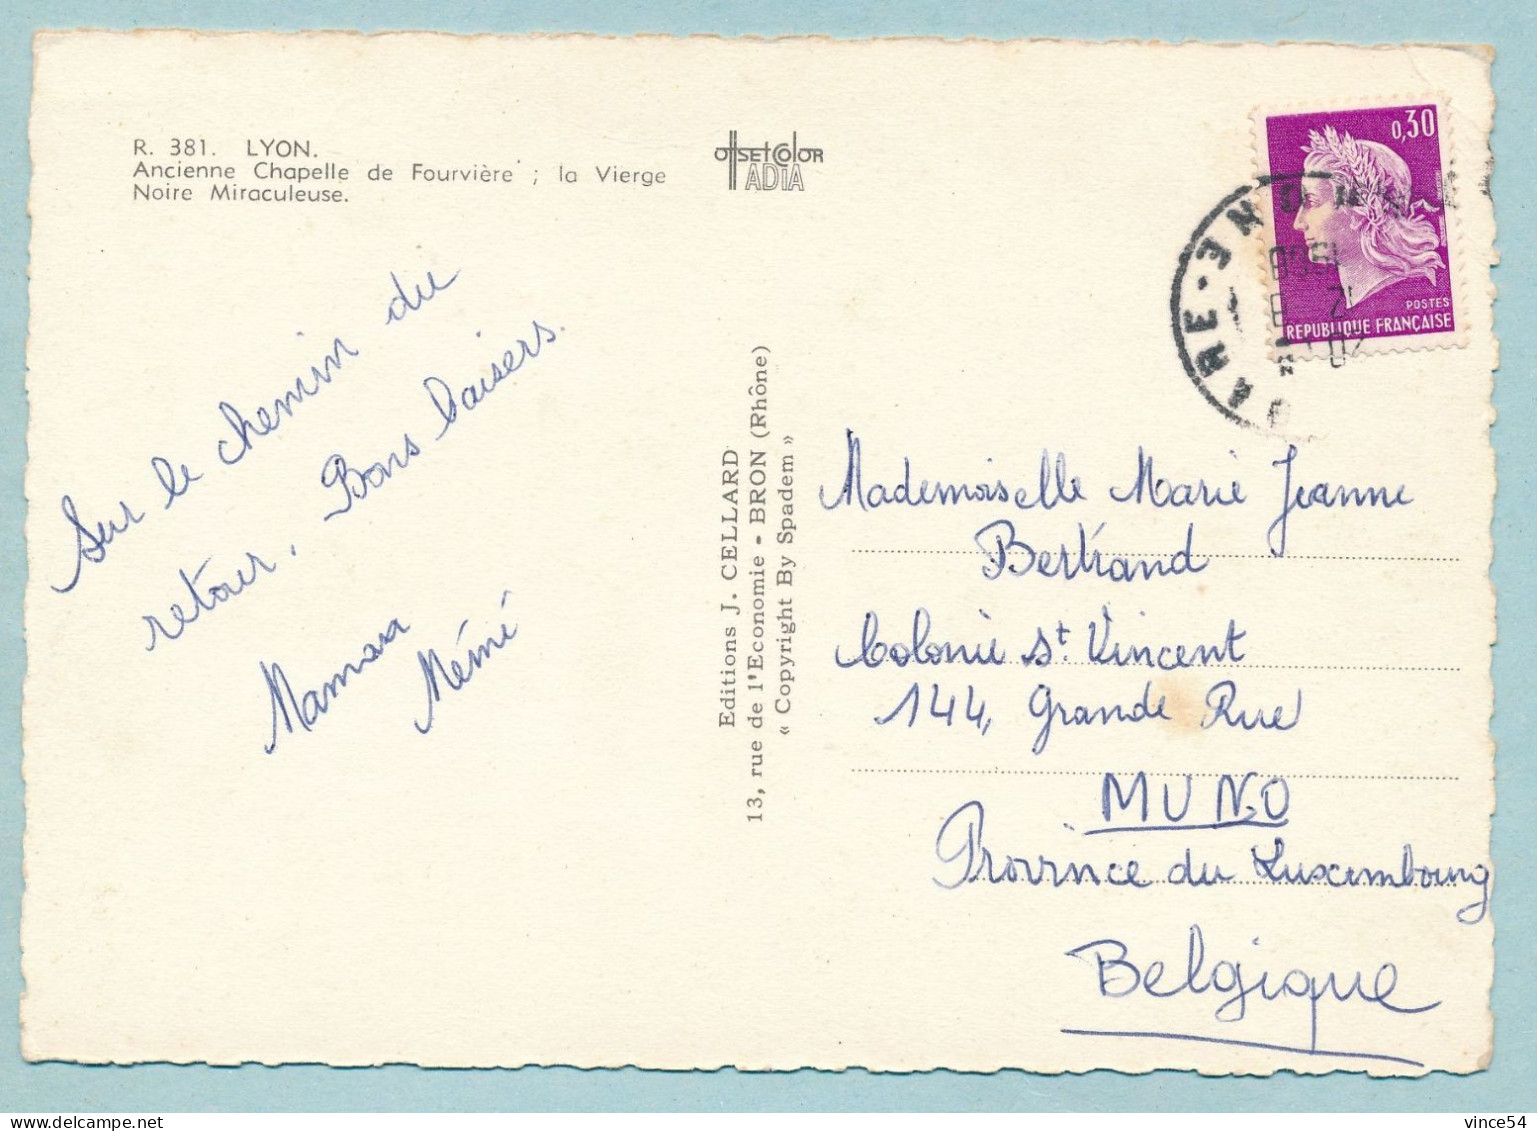 R. 381. LYON.
Ancienne Chapelle de Fourvière ; la Vierge
Noire Miraculeuse.
OffSETCOlOR
IADIA
Sur le chemin du
retour. Bons baisers.
Maman
Mémé
Editions J. CELLARD
13, rue de l'Economie - BRON (Rhône)
« Copyright By Spadem »
0,30
POSTES
REPUBLIQUE FRANÇAISE
1968
Mademoiselle Marie Jeanne
Bertrand
Colonie St Vincent
144, Grande Rue
MUNO
Province du Luxembourg
Belgique
vince54